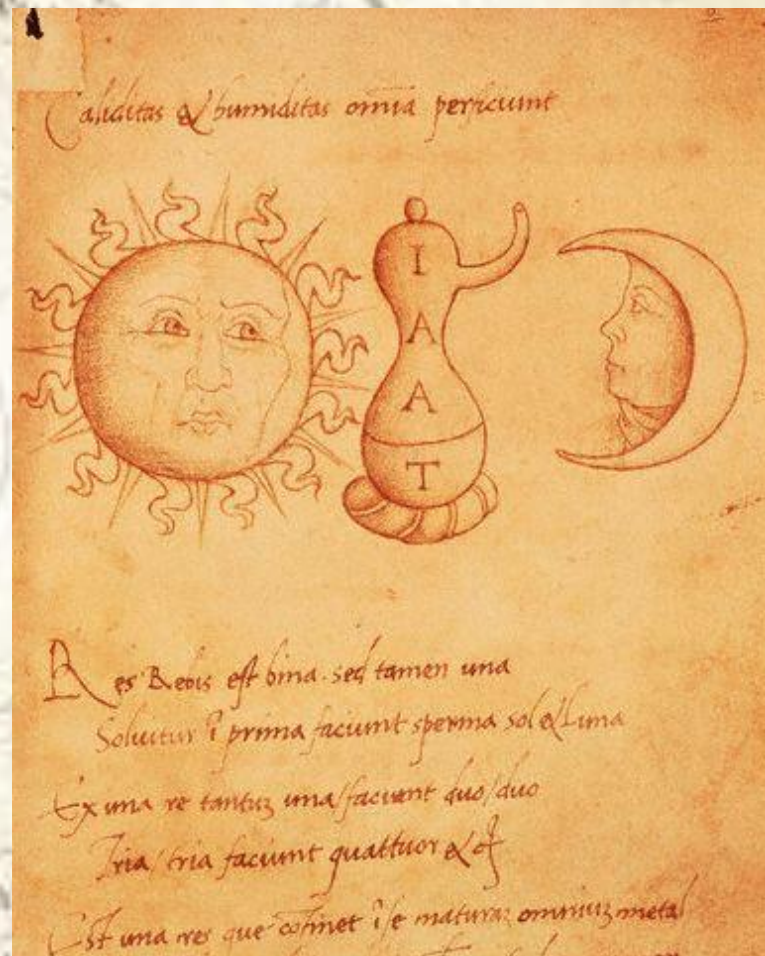 Caliditas & humiditas omnia perficiunt
I
A
A
T
Res Rebis est bina sed tamen una
Solvitur ī prima faciunt sperma sol & Luna
Ex una re tantuʒ una / faciunt duo / duo
Tria / tria faciunt quattuor &
Est una res que cōtinet ī se naturaʒ omniuʒ metal